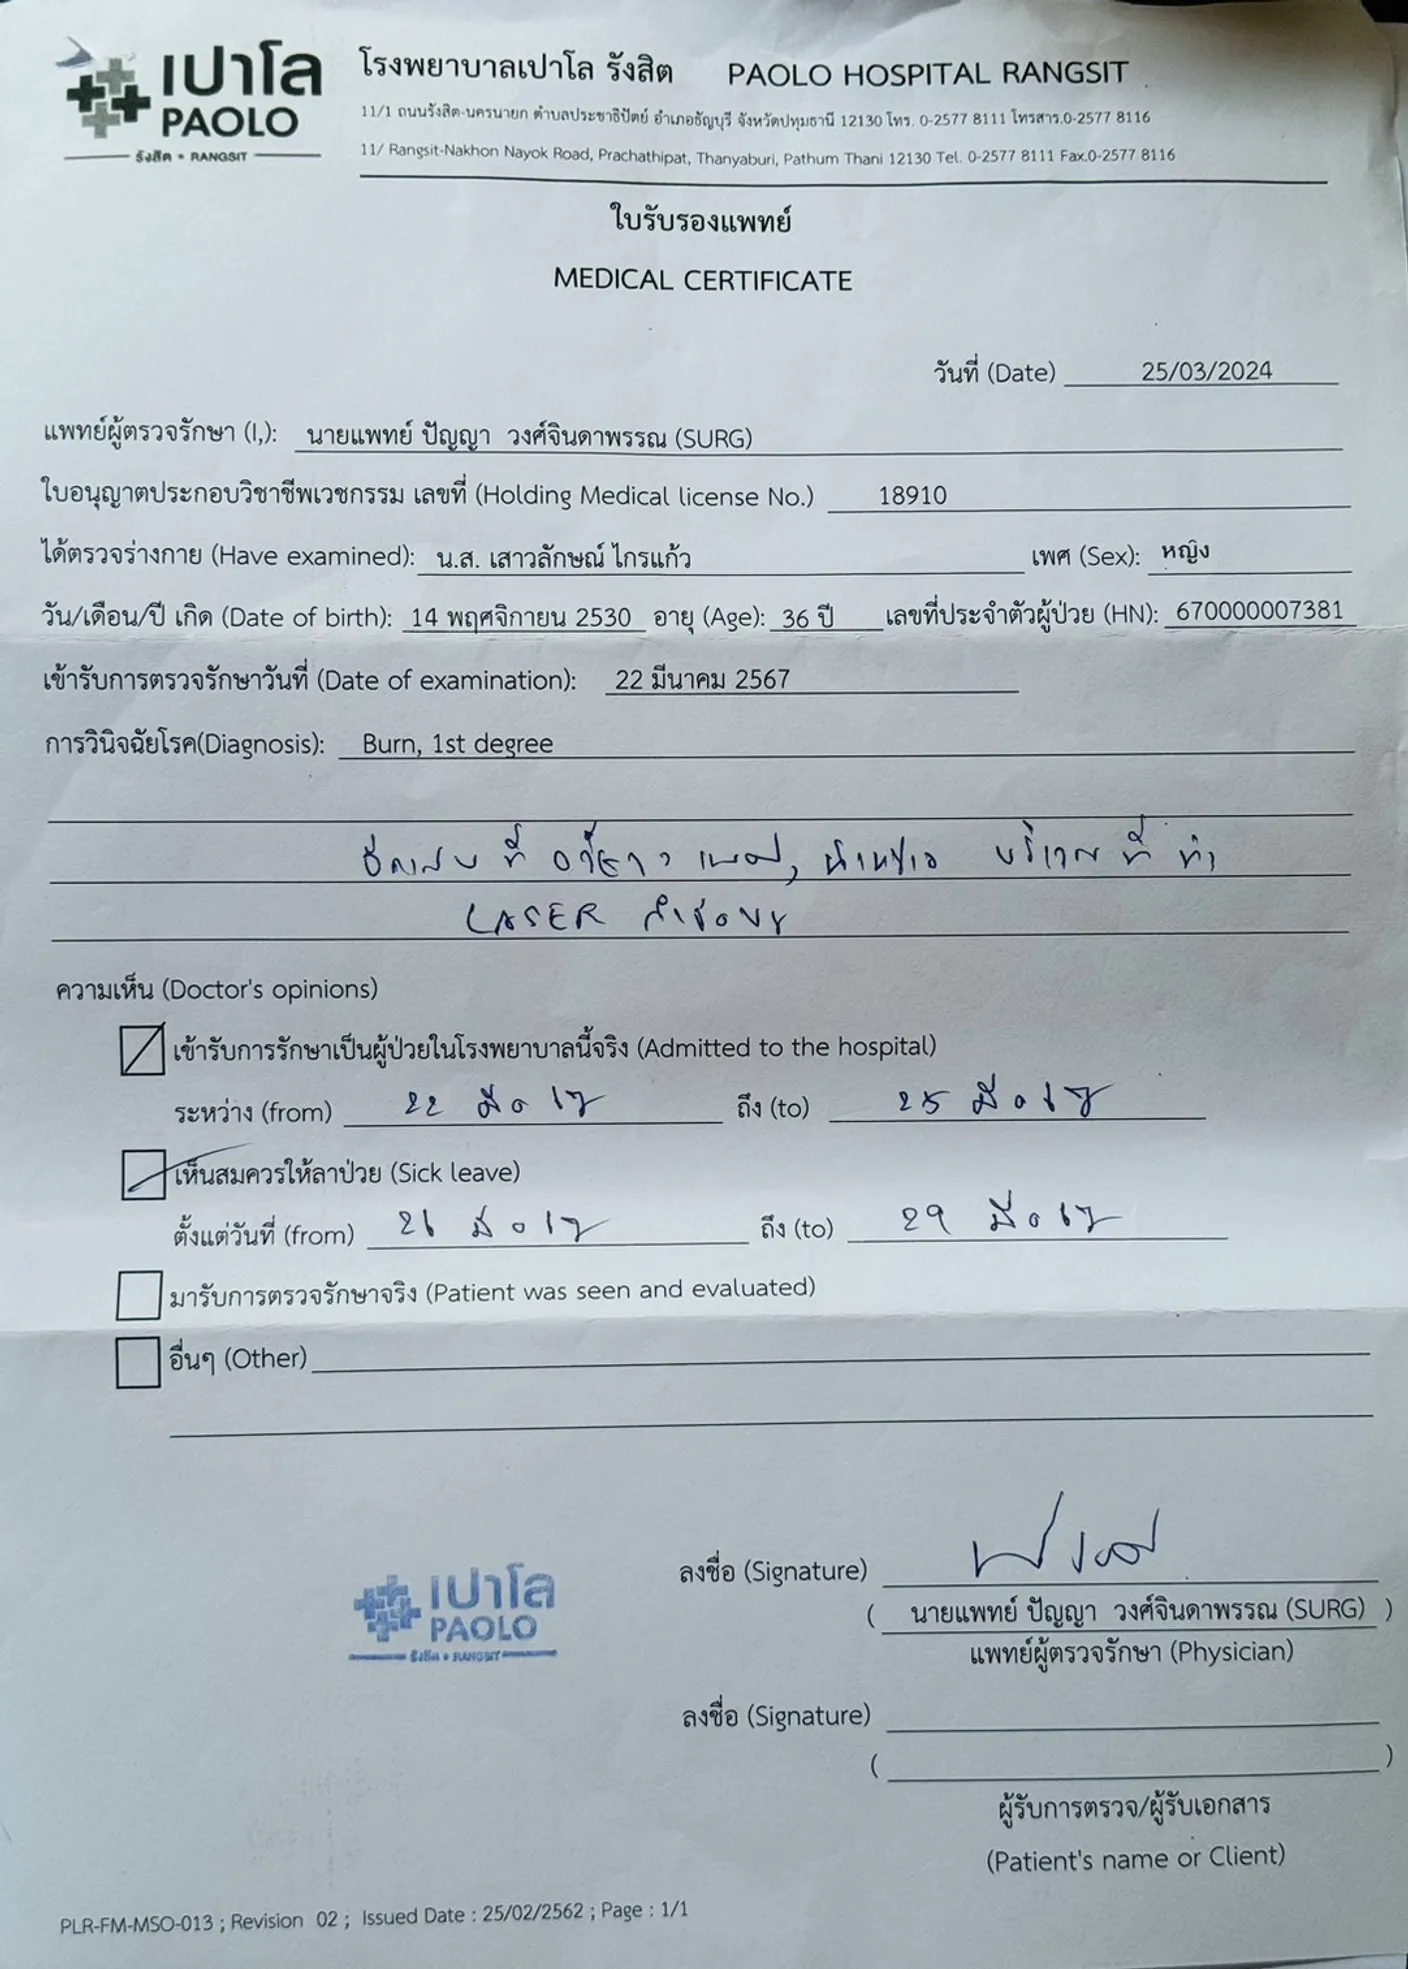 เปาโล
PAOLO
รังสิต • RANGSIT
โรงพยาบาลเปาโล รังสิต PAOLO HOSPITAL RANGSIT
11/1 ถนนรังสิต-นครนายก ตำบลประชาธิปัตย์ อำเภอธัญบุรี จังหวัดปทุมธานี 12130 โทร. 0-2577 8111 โทรสาร.0-2577 8116
11/ Rangsit-Nakhon Nayok Road, Prachathipat, Thanyaburi, Pathum Thani 12130 Tel. 0-2577 8111 Fax.0-2577 8116
ใบรับรองแพทย์
MEDICAL CERTIFICATE
วันที่ (Date) 25/03/2024
แพทย์ผู้ตรวจรักษา (I,): นายแพทย์ ปัญญา วงศ์จินดาพรรณ (SURG)
ใบอนุญาตประกอบวิชาชีพเวชกรรม เลขที่ (Holding Medical license No.) 18910
ได้ตรวจร่างกาย (Have examined): น.ส. เสาวลักษณ์ ไกรแก้ว เพศ (Sex): หญิง
วัน/เดือน/ปี เกิด (Date of birth): 14 พฤศจิกายน 2530 อายุ (Age): 36 ปี เลขที่ประจำตัวผู้ป่วย (HN): 670000007381
เข้ารับการตรวจรักษาวันที่ (Date of examination): 22 มีนาคม 2567
การวินิจฉัยโรค(Diagnosis): Burn, 1st degree
อักเสบ ที่ อวัยวะเพศ, บริเวณ ที่ ทำ
LASER
ความเห็น (Doctor's opinions)
เข้ารับการรักษาเป็นผู้ป่วยในโรงพยาบาลนี้จริง (Admitted to the hospital)
ระหว่าง (from) 22 มีค 67 ถึง (to) 25 มีค 67
เห็นสมควรให้ลาป่วย (Sick leave)
ตั้งแต่วันที่ (from) 26 มีค 67 ถึง (to) 29 มีค 67
มารับการตรวจรักษาจริง (Patient was seen and evaluated)
อื่นๆ (Other)
เปาโล
PAOLO
รังสิต • RANGSIT
ลงชื่อ (Signature)
( นายแพทย์ ปัญญา วงศ์จินดาพรรณ (SURG) )
แพทย์ผู้ตรวจรักษา (Physician)
ลงชื่อ (Signature)
( )
ผู้รับการตรวจ/ผู้รับเอกสาร
(Patient's name or Client)
PLR-FM-MSO-013 ; Revision 02 ; Issued Date : 25/02/2562 ; Page : 1/1